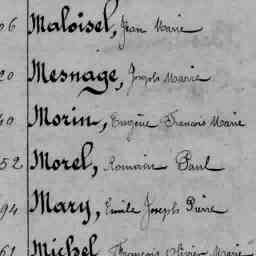 06 Maloisel, Jean Marie
20 Mesnage, Joseph Marie
40 Morin, Eugène François Marie
52 Morel, Romain Paul
94 Mary, Emile Joseph Pierre
61 Michel, François Olivier Marie